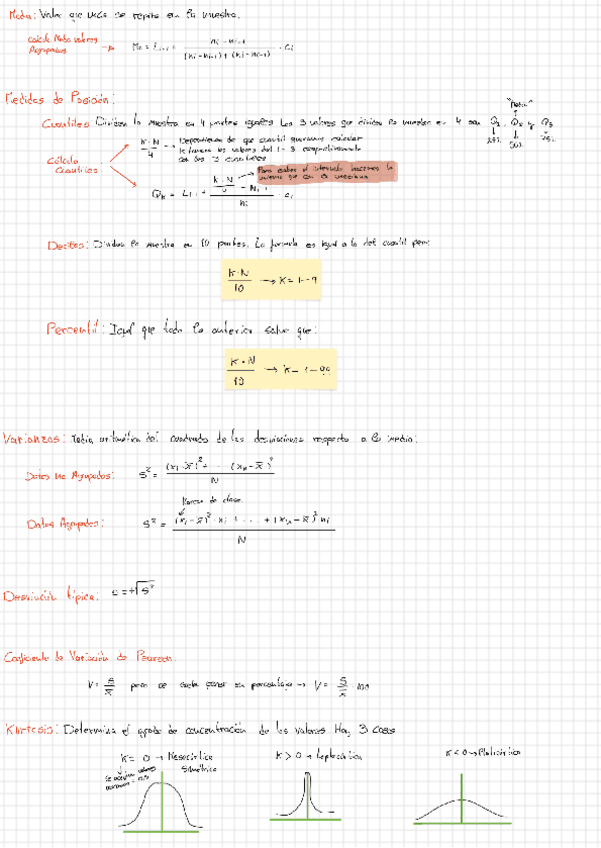 Moda: Valor que más se repite en la muestra.
Cálculo Moda valores
Agrupados → Mo = Li-1 + ni - ni-1 / (ni - ni-1) + (ni - ni+1) · ci
Medidas de Posición:
"Media"
Cuartiles: Dividen la muestra en 4 partes iguales Los 3 valores que dividen la muestra en 4 son Q1, Q2 y Q3
25% 50% 75%
Cálculo
Cuartiles
K·N / 4 → Dependiendo de que cuartil queramos calcular
le damos los valores del 1-3
con los 3 cuartiles
Para saber el intervalo hacemos lo
mismo que con la mediana
Qk = Li-1 + K·N / 4 - Ni-1 / ni · ci
Deciles: Dividen la muestra en 10 partes. La formula es igual a la del cuartil pero:
K·N / 10 → K = 1-9
Percentil: Igual que todo lo anterior salvo que:
K·N / 10 → K = 1-99
Varianzas: Media aritmética del cuadrado de las desviaciones respecto a la media:
Datos No Agrupados: S² = (xi - x̄)² + (xn - x̄)² / N
Marca de clase
Datos Agrupados: S² = (xi - x̄)² · ni + .... + (xn - x̄)² · ni / N
Desviación típica: S = +√S²
Coeficiente de Variación de Pearson:
V = S / x̄ pero se suele poner en porcentaje → V = S / x̄ · 100
Kurtosis: Determina el grado de concentración de los valores Hay 3 casos
K = 0 → Mesocúrtica
Simétrica
K > 0 → Leptocúrtica
K < 0 → Platicúrtica